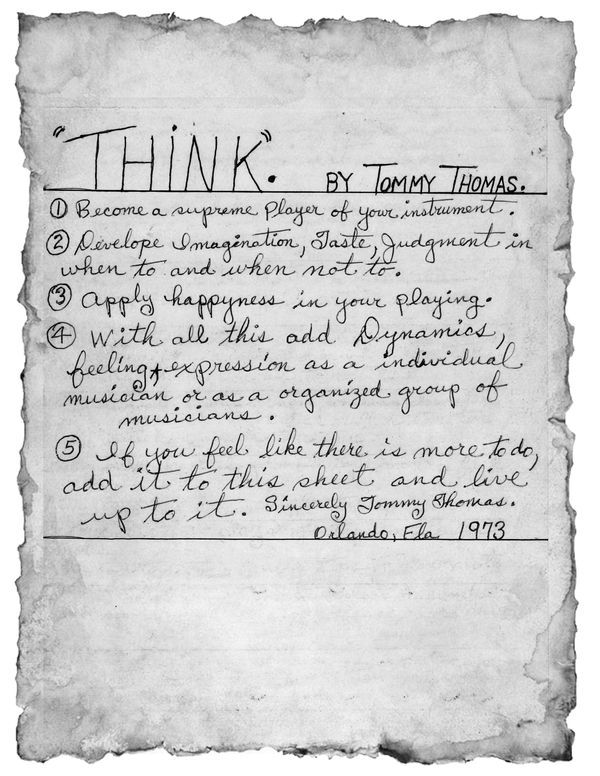 "THINK". BY TOMMY THOMAS.
① Become a supreme Player of your instrument.
② Develope Imagination, Taste, Judgment in
when to and when not to.
③ Apply happyness in your playing.
④ With all this add Dynamics,
feeling, + expression as a individual
musician or as a organized group of
musicians.
⑤ If you feel like there is more to do,
add it to this sheet and live
up to it. Sincerely Tommy Thomas.
Orlando, Fla 1973